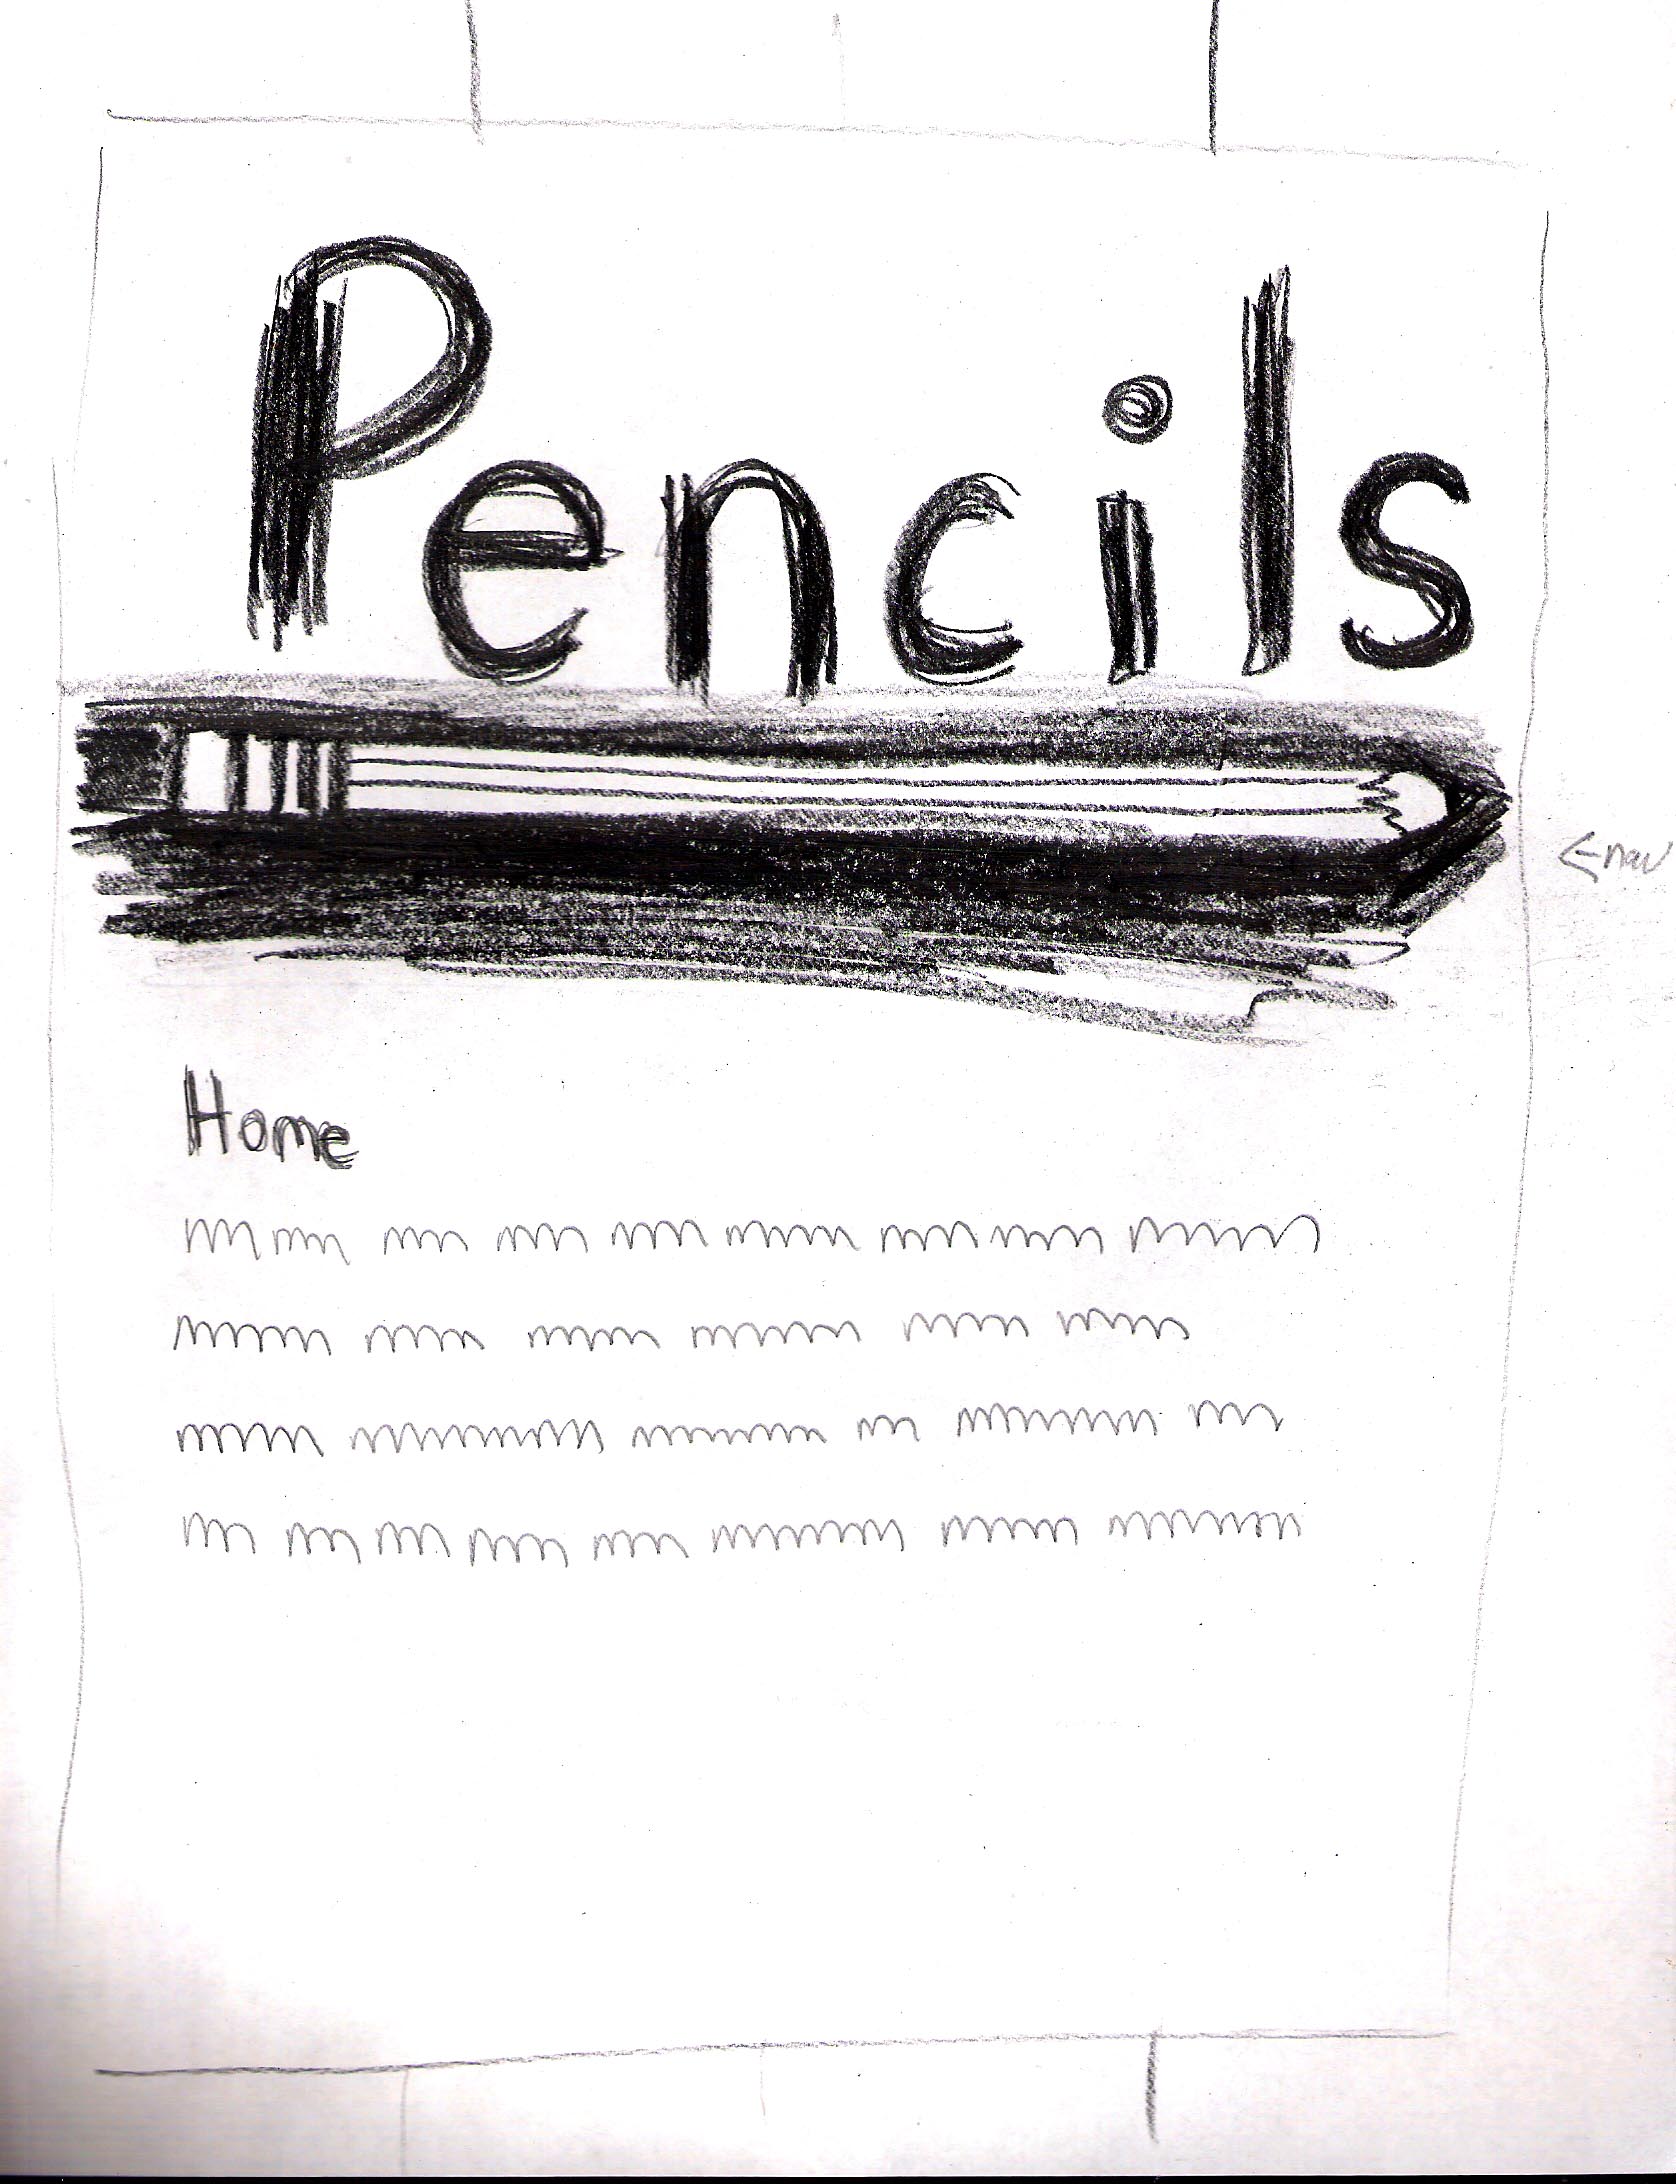 Pencils
nav
Home